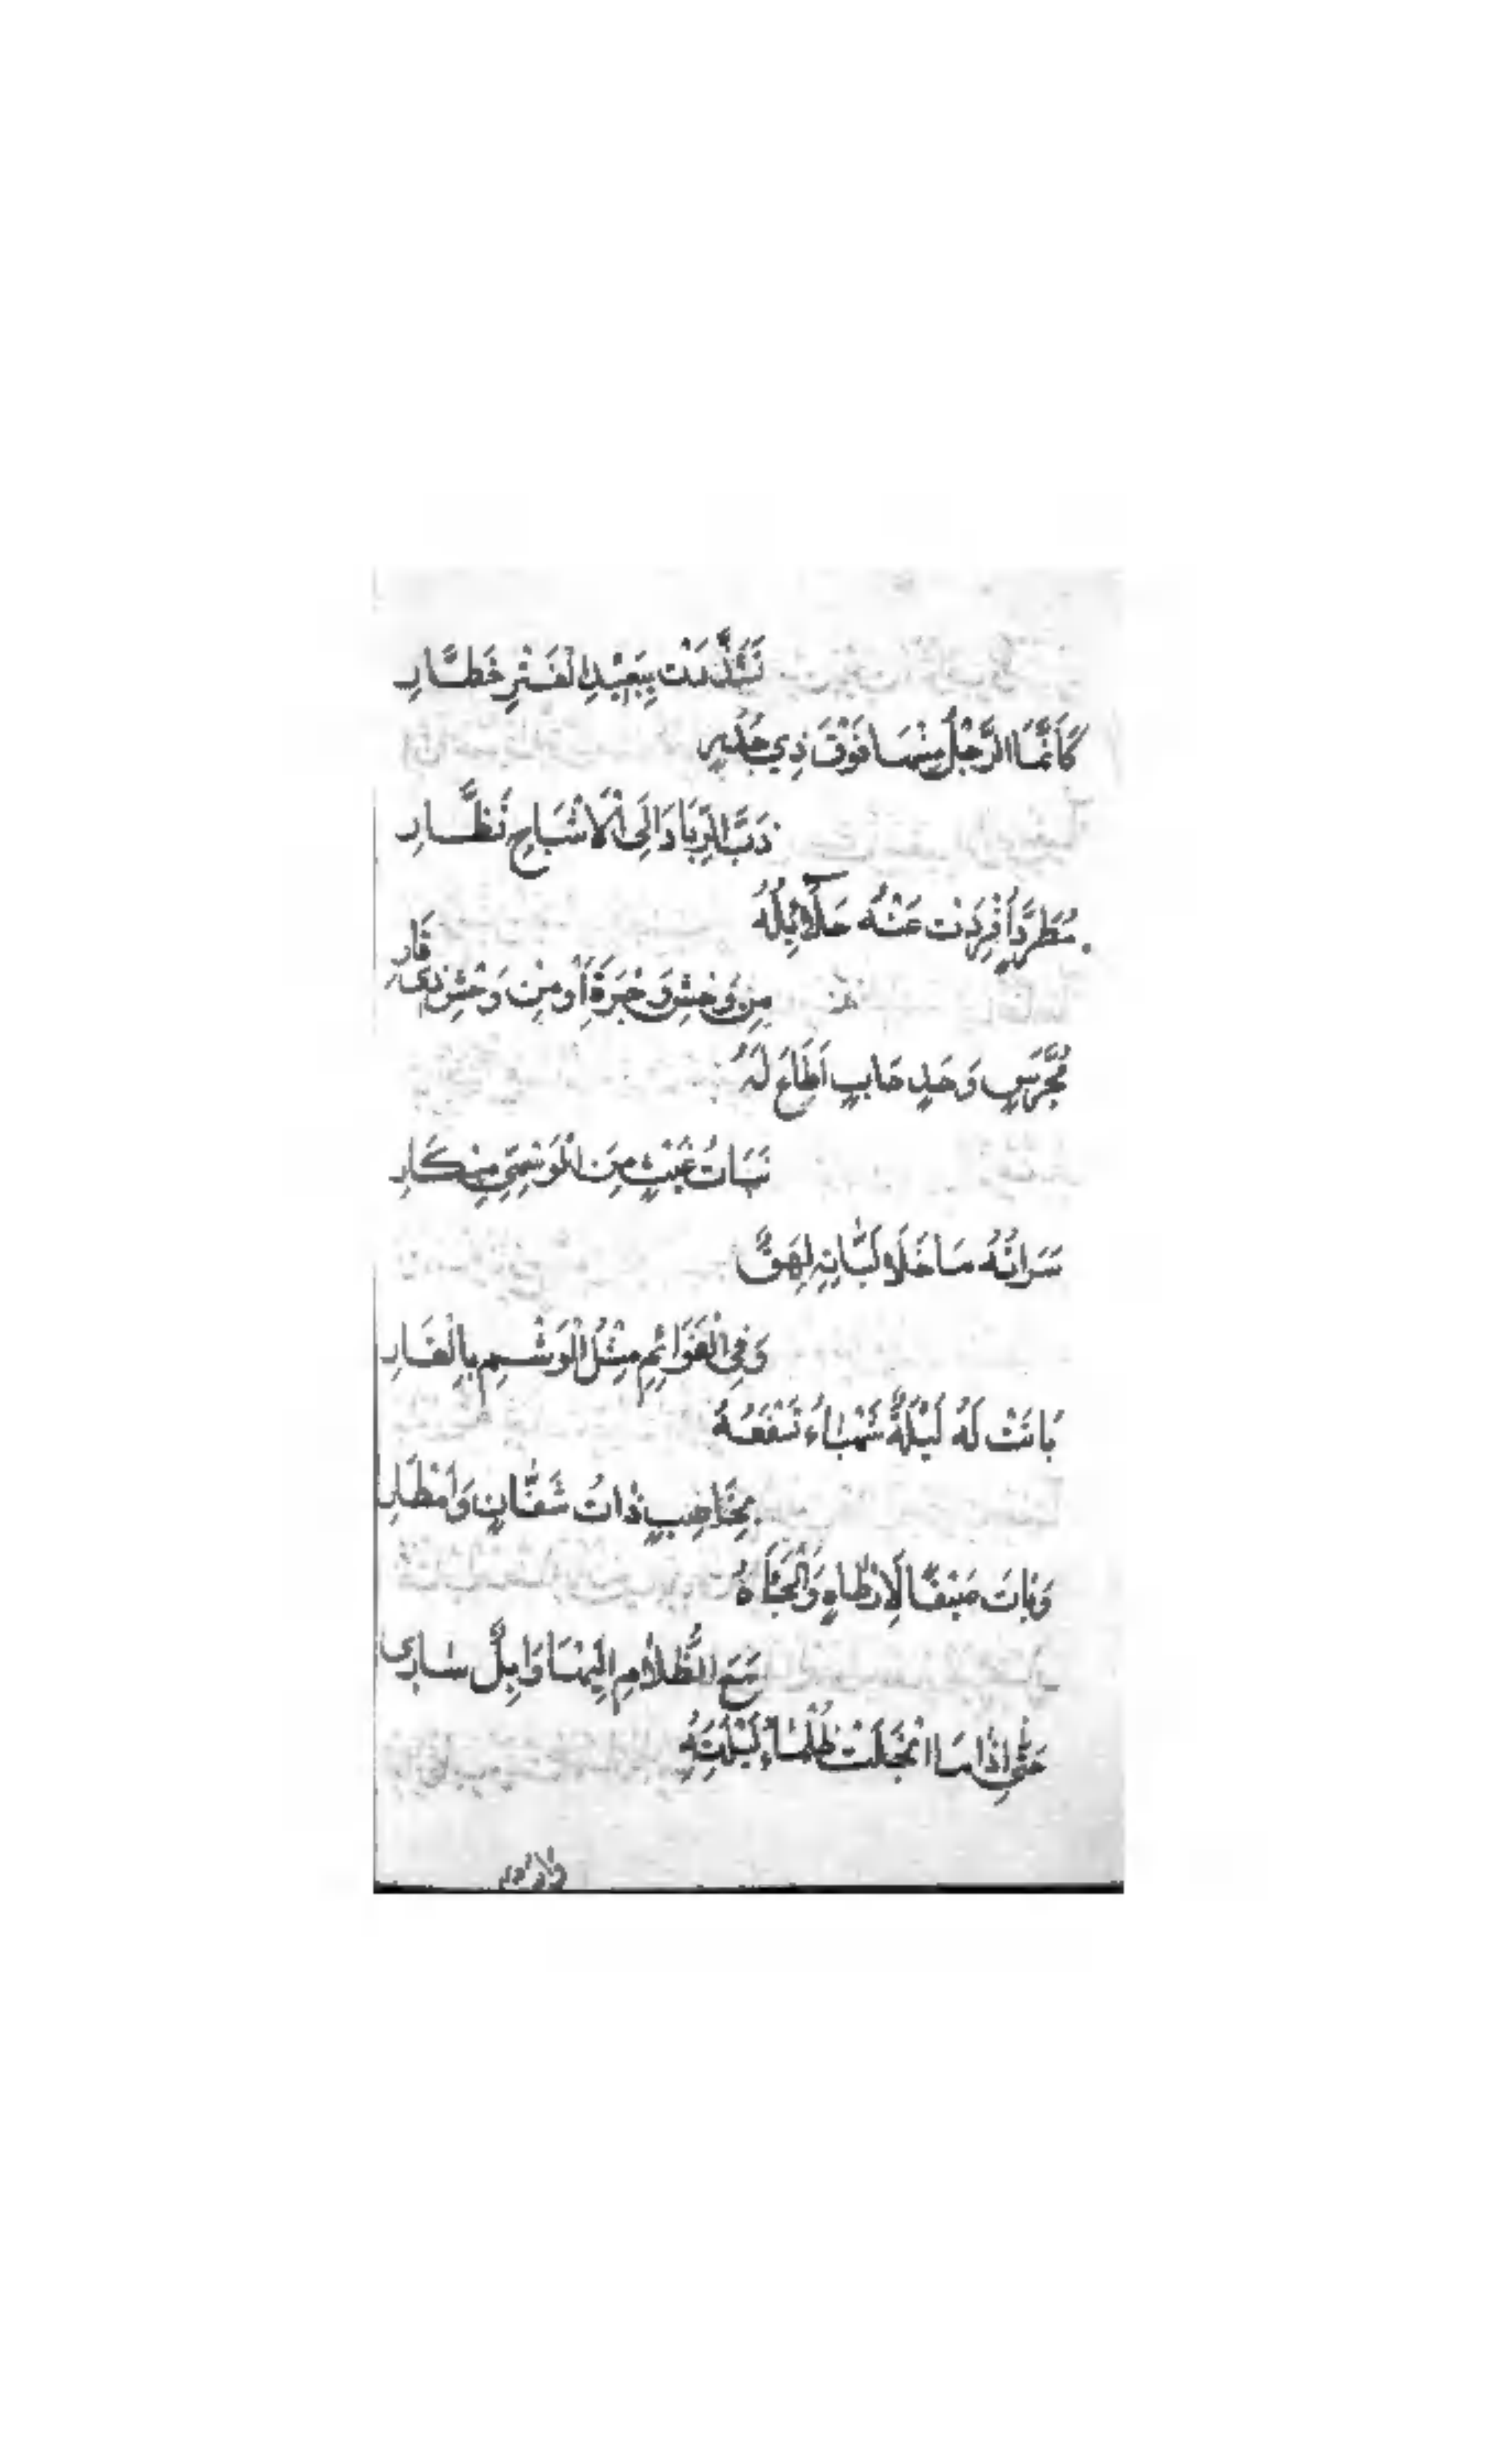 تَشَذَّرَتْ بِبَعِيْدِ الْفَتْرِ خَطَّارِ
كَأَنَّمَا الرَّحْلُ مِنْهَا فَوْقَ ذِي جُدَدٍ
ذَبِّ الرِّيَادِ اِلَى الْاَشْبَاحِ نَظَّارِ
مُطَرَّدٍ اُفْرِدَتْ عَنْهُ حَلَائِلُهُ
مِنْ وَحْشِ وَجْرَةَ أَوْ مِنْ وَحْشِ ذِي قَارِ
مُجَرَّسٍ وَحَدٍ جَابٍ اَطَاعَ لَهُ
نَبَاتُ غَيْثٍ مِنَ الْوَسْمِيِّ مِبْكَارِ
سَرَاتُهُ مَا خَلَا لَبَانِهِ لَهَقٌ
وَفِي الْقَوَائِمِ مِثْلُ الْوَشْمِ بِالْقَارِ
بَاتَتْ لَهُ لَيْلَةٌ شَهْبَاءُ تَسْفَعُهُ
بِحَاصِبٍ ذَاتُ شَفَّانٍ وَاَمْطَارِ
وَبَاتَ ضَيْفًا لِاَرْطَاةٍ وَاَلْجَأَهُ
مَعَ الظَّلَامِ اِلَيْهَا وَابِلٌ سَارِي
حَتَّى اِذَا مَا انْجَلَتْ ظَلْمَاءُ لَيْلَتِهِ